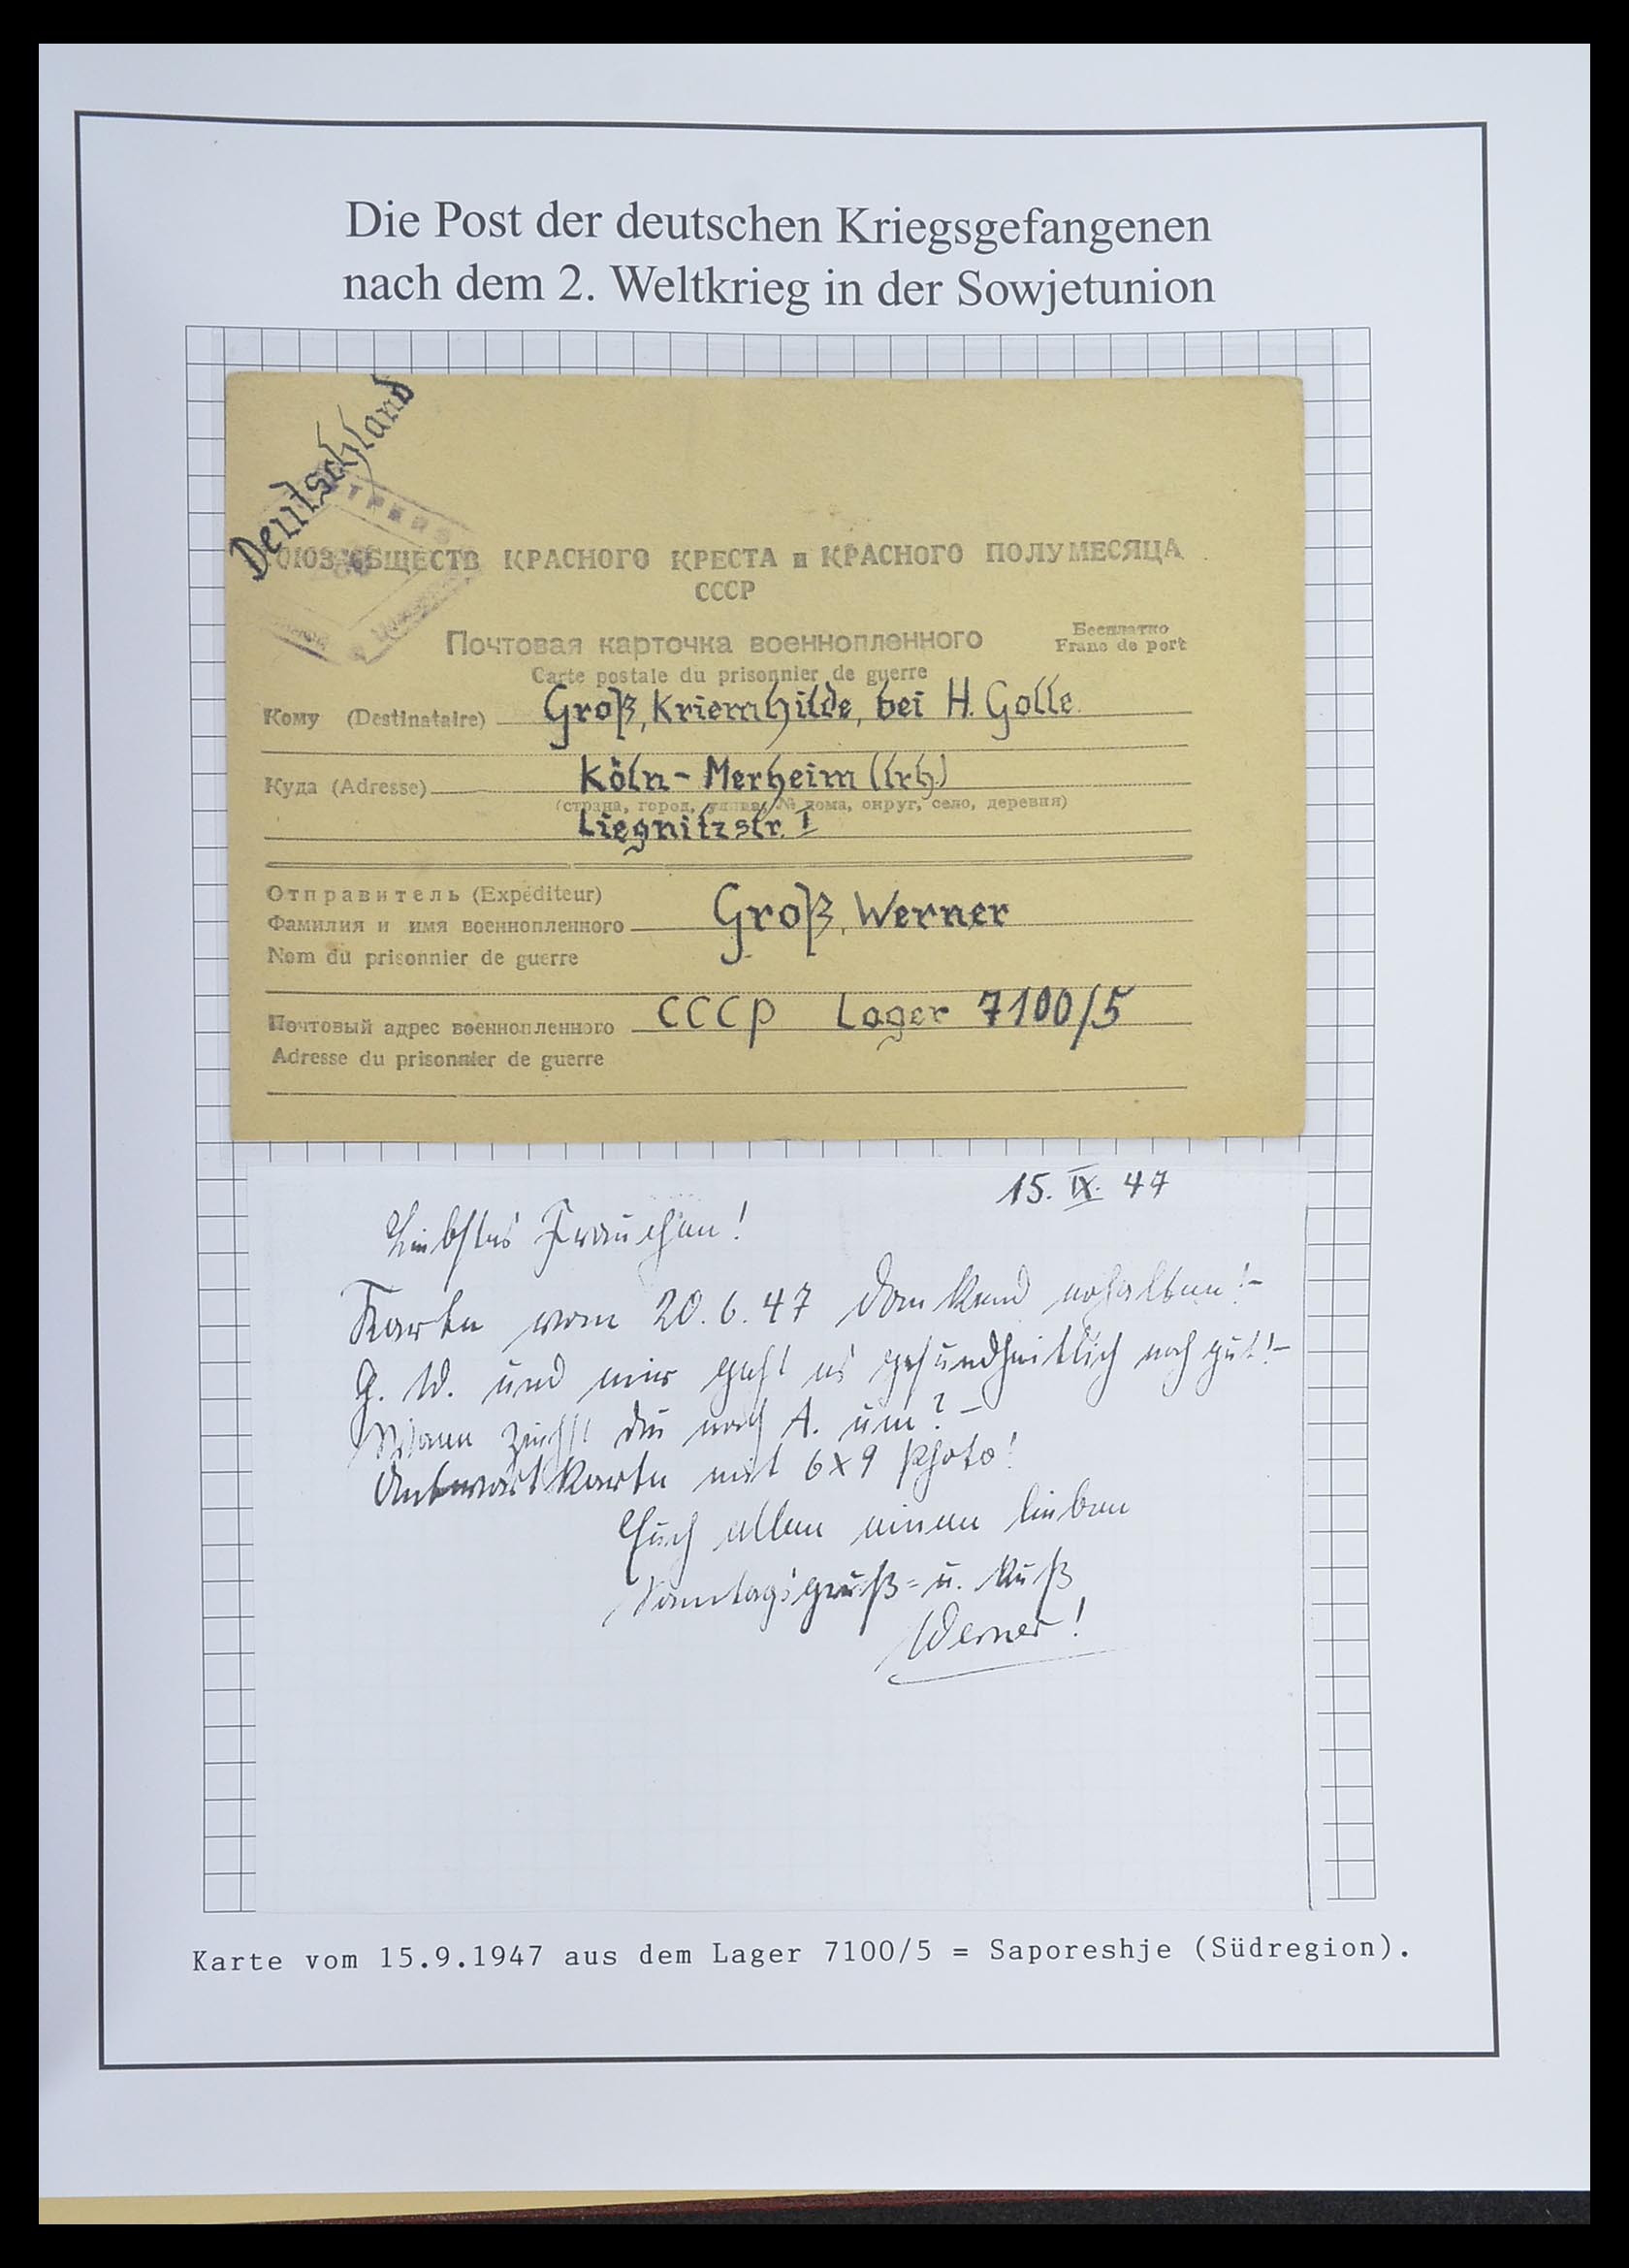 Die Post der deutschen Kriegsgefangenen
nach dem 2. Weltkrieg in der Sowjetunion
Deutschland
ОЮЗ ОБЩЕСТВ КРАСНОГО КРЕСТА и КРАСНОГО ПОЛУМЕСЯЦА
СССР
Почтовая карточка военнопленного
Бесплатно
Franc de port
Carte postale du prisonnier de guerre
Кому (Destinataire) Groß, Kriemhilde, bei H. Golle
Куда (Adresse) Köln-Merheim (lrh.)
(страна, город, улица, № дома, округ, село, деревня)
Liegnitzstr. I
Отправитель (Expéditeur)
Фамилия и имя военнопленного Groß, Werner
Nom du prisonnier de guerre
Почтовый адрес военнопленного СССР Lager 7100/5
Adresse du prisonnier de guerre
15. IX. 47
Liebstes Frauchen!
Karte vom 20.6.47 dankend erhalten!-
G. W. und mir geht es gesundheitlich noch gut!-
Wann ziehst du nach A. um?-
Antwortkarte mit 6x9 Photo!
Euch allen einen lieben
Sonntagsgruß= u. Kuß
Werner!
Karte vom 15.9.1947 aus dem Lager 7100/5 = Saporeshje (Südregion).